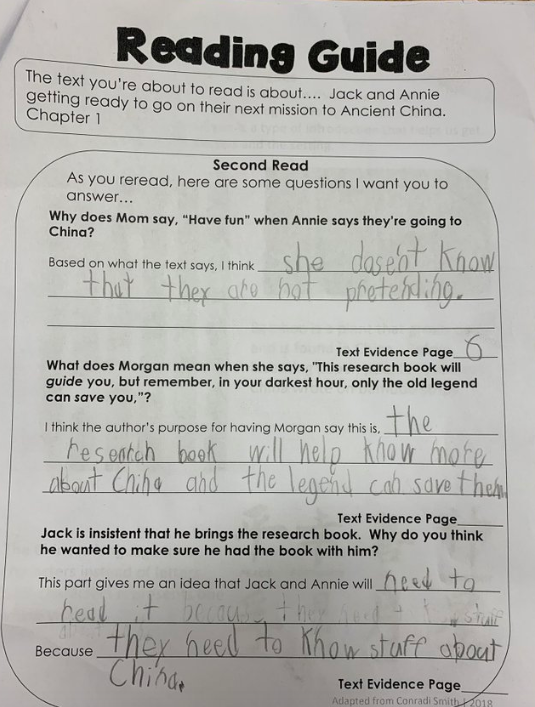 Reading Guide
The text you're about to read is about.... Jack and Annie
getting ready to go on their next mission to Ancient China.
Chapter 1
Second Read
As you reread, here are some questions I want you to
answer...
Why does Mom say, "Have fun" when Annie says they're going to
China?
Based on what the text says, I think she dose'nt know
that they are not pretending.
Text Evidence Page 6
What does Morgan mean when she says, "This research book will
guide you, but remember, in your darkest hour, only the old legend
can save you,"?
I think the author's purpose for having Morgan say this is, the
research book will help know more
about China and the legend can save them
Text Evidence Page
Jack is insistent that he brings the research book. Why do you think
he wanted to make sure he had the book with him?
This part gives me an idea that Jack and Annie will need to
read it
Because they need to know stuff about
China.
Text Evidence Page
Adapted from Conradi Smith 2018